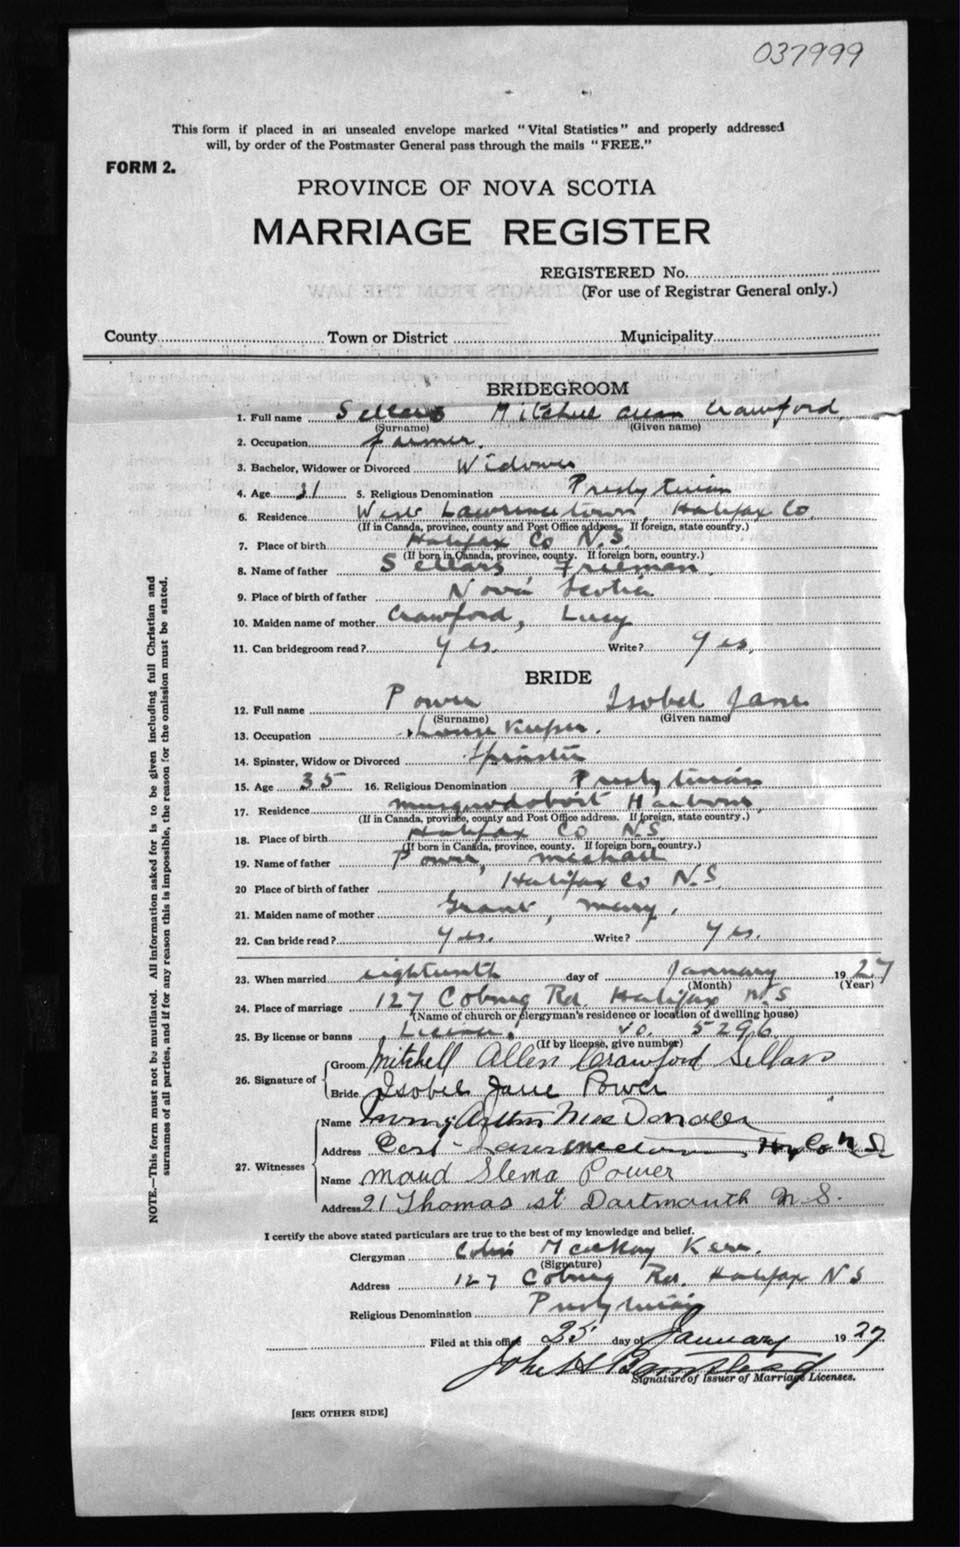 037999
This form if placed in an unsealed envelope marked "Vital Statistics" and properly addressed
will, by order of the Postmaster General pass through the mails "FREE."
FORM 2.
PROVINCE OF NOVA SCOTIA
MARRIAGE REGISTER
REGISTERED No.
(For use of Registrar General only.)
County Town or District Municipality
BRIDEGROOM
1. Full name Sellars Mitchell Allan Crawford
(Surname) (Given name)
2. Occupation farmer.
3. Bachelor, Widower or Divorced Widower
4. Age 31 5. Religious Denomination Presbyterian
6. Residence West Lawrencetown, Halifax Co.
(If in Canada, province, county and Post Office address. If foreign, state country.)
7. Place of birth Halifax Co N.S.
(If born in Canada, province, county. If foreign born, country.)
8. Name of father Sellars Freeman.
9. Place of birth of father Nova Scotia
10. Maiden name of mother Crawford, Lucy
11. Can bridegroom read? Yes. Write? Yes.
BRIDE
12. Full name Power Isobel Jane
(Surname) (Given name)
13. Occupation House Keeper.
14. Spinster, Widow or Divorced Spinster
15. Age 35 16. Religious Denomination Presbyterian
17. Residence Musquodoboit Harbour,
(If in Canada, province, county and Post Office address. If foreign, state country.)
18. Place of birth Halifax Co N.S.
(If born in Canada, province, county. If foreign born, country.)
19. Name of father Power, Michael
20 Place of birth of father Halifax Co N.S.
21. Maiden name of mother Grant, Mary.
22. Can bride read? Yes. Write? Yes.
23. When married eighteenth day of January 1927
(Month) (Year)
24. Place of marriage 127 Coburg Rd. Halifax N.S.
(Name of church or clergyman's residence or location of dwelling house)
25. By license or banns License, no. 5296
(If by license, give number)
26. Signature of Groom Mitchell Allen Crawford Sellars
Bride Isobel Jane Power
27. Witnesses Name Irving Arthur MacDonald
Address East Lawrencetown, Hfx Co N S.
Name Maud Slema Power
Address 21 Thomas st Dartmouth N. S.
I certify the above stated particulars are true to the best of my knowledge and belief.
Clergyman Colin MacKay Kerr.
(Signature)
Address 127 Coburg Rd. Halifax N S
Religious Denomination Presbyterian
Filed at this office 25 day of January 1927
John H Barnstead
Signature of Issuer of Marriage Licenses.
[SEE OTHER SIDE]
NOTE.—This form must not be mutilated. All information asked for is to be given including full Christian and
surnames of all parties, and if for any reason this is impossible, the reason for the omission must be stated.